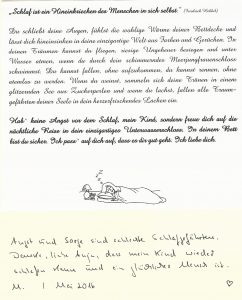 „Schlaf ist ein Hineinkriechen des Menschen in sich selbst."
Du schließt deine Augen, fühlst die wohlige Wärme deiner Bettdecke und
lässt dich hineinsinken in deine einzigartige Welt aus Farben und Gerüchen. In
deinen Träumen kannst du fliegen, riesige Ungeheuer besiegen und unter
Wasser atmen, wenn du durch dein schimmerndes Meerjungfrauenschloss
schwimmst. Du kannst fallen, ohne aufzukommen, du kannst rennen, ohne
atemlos zu werden. Wenn du weinst, sammeln sich deine Tränen in einem
glitzernden See aus Zuckerperlen und wenn du lachst, fallen alle Traum-
gefährten deiner Seele in dein herzerfrischendes Lachen ein.
Hab' keine Angst vor dem Schlaf, mein Kind, sondern freue dich auf die
nächtliche Reise in dein einzigartiges Unterwasserschloss. In deinem Bett
bist du sicher. Ich passe auf dich auf, dass es dir gut geht. Ich liebe dich.
Angst und Sorge sind schlechte Schlafgefährten.
Danke, liebe Anja, dass mein Kind wieder
schlafen kann und ein glücklicher Mensch ist.
M. 1 Mai 2016